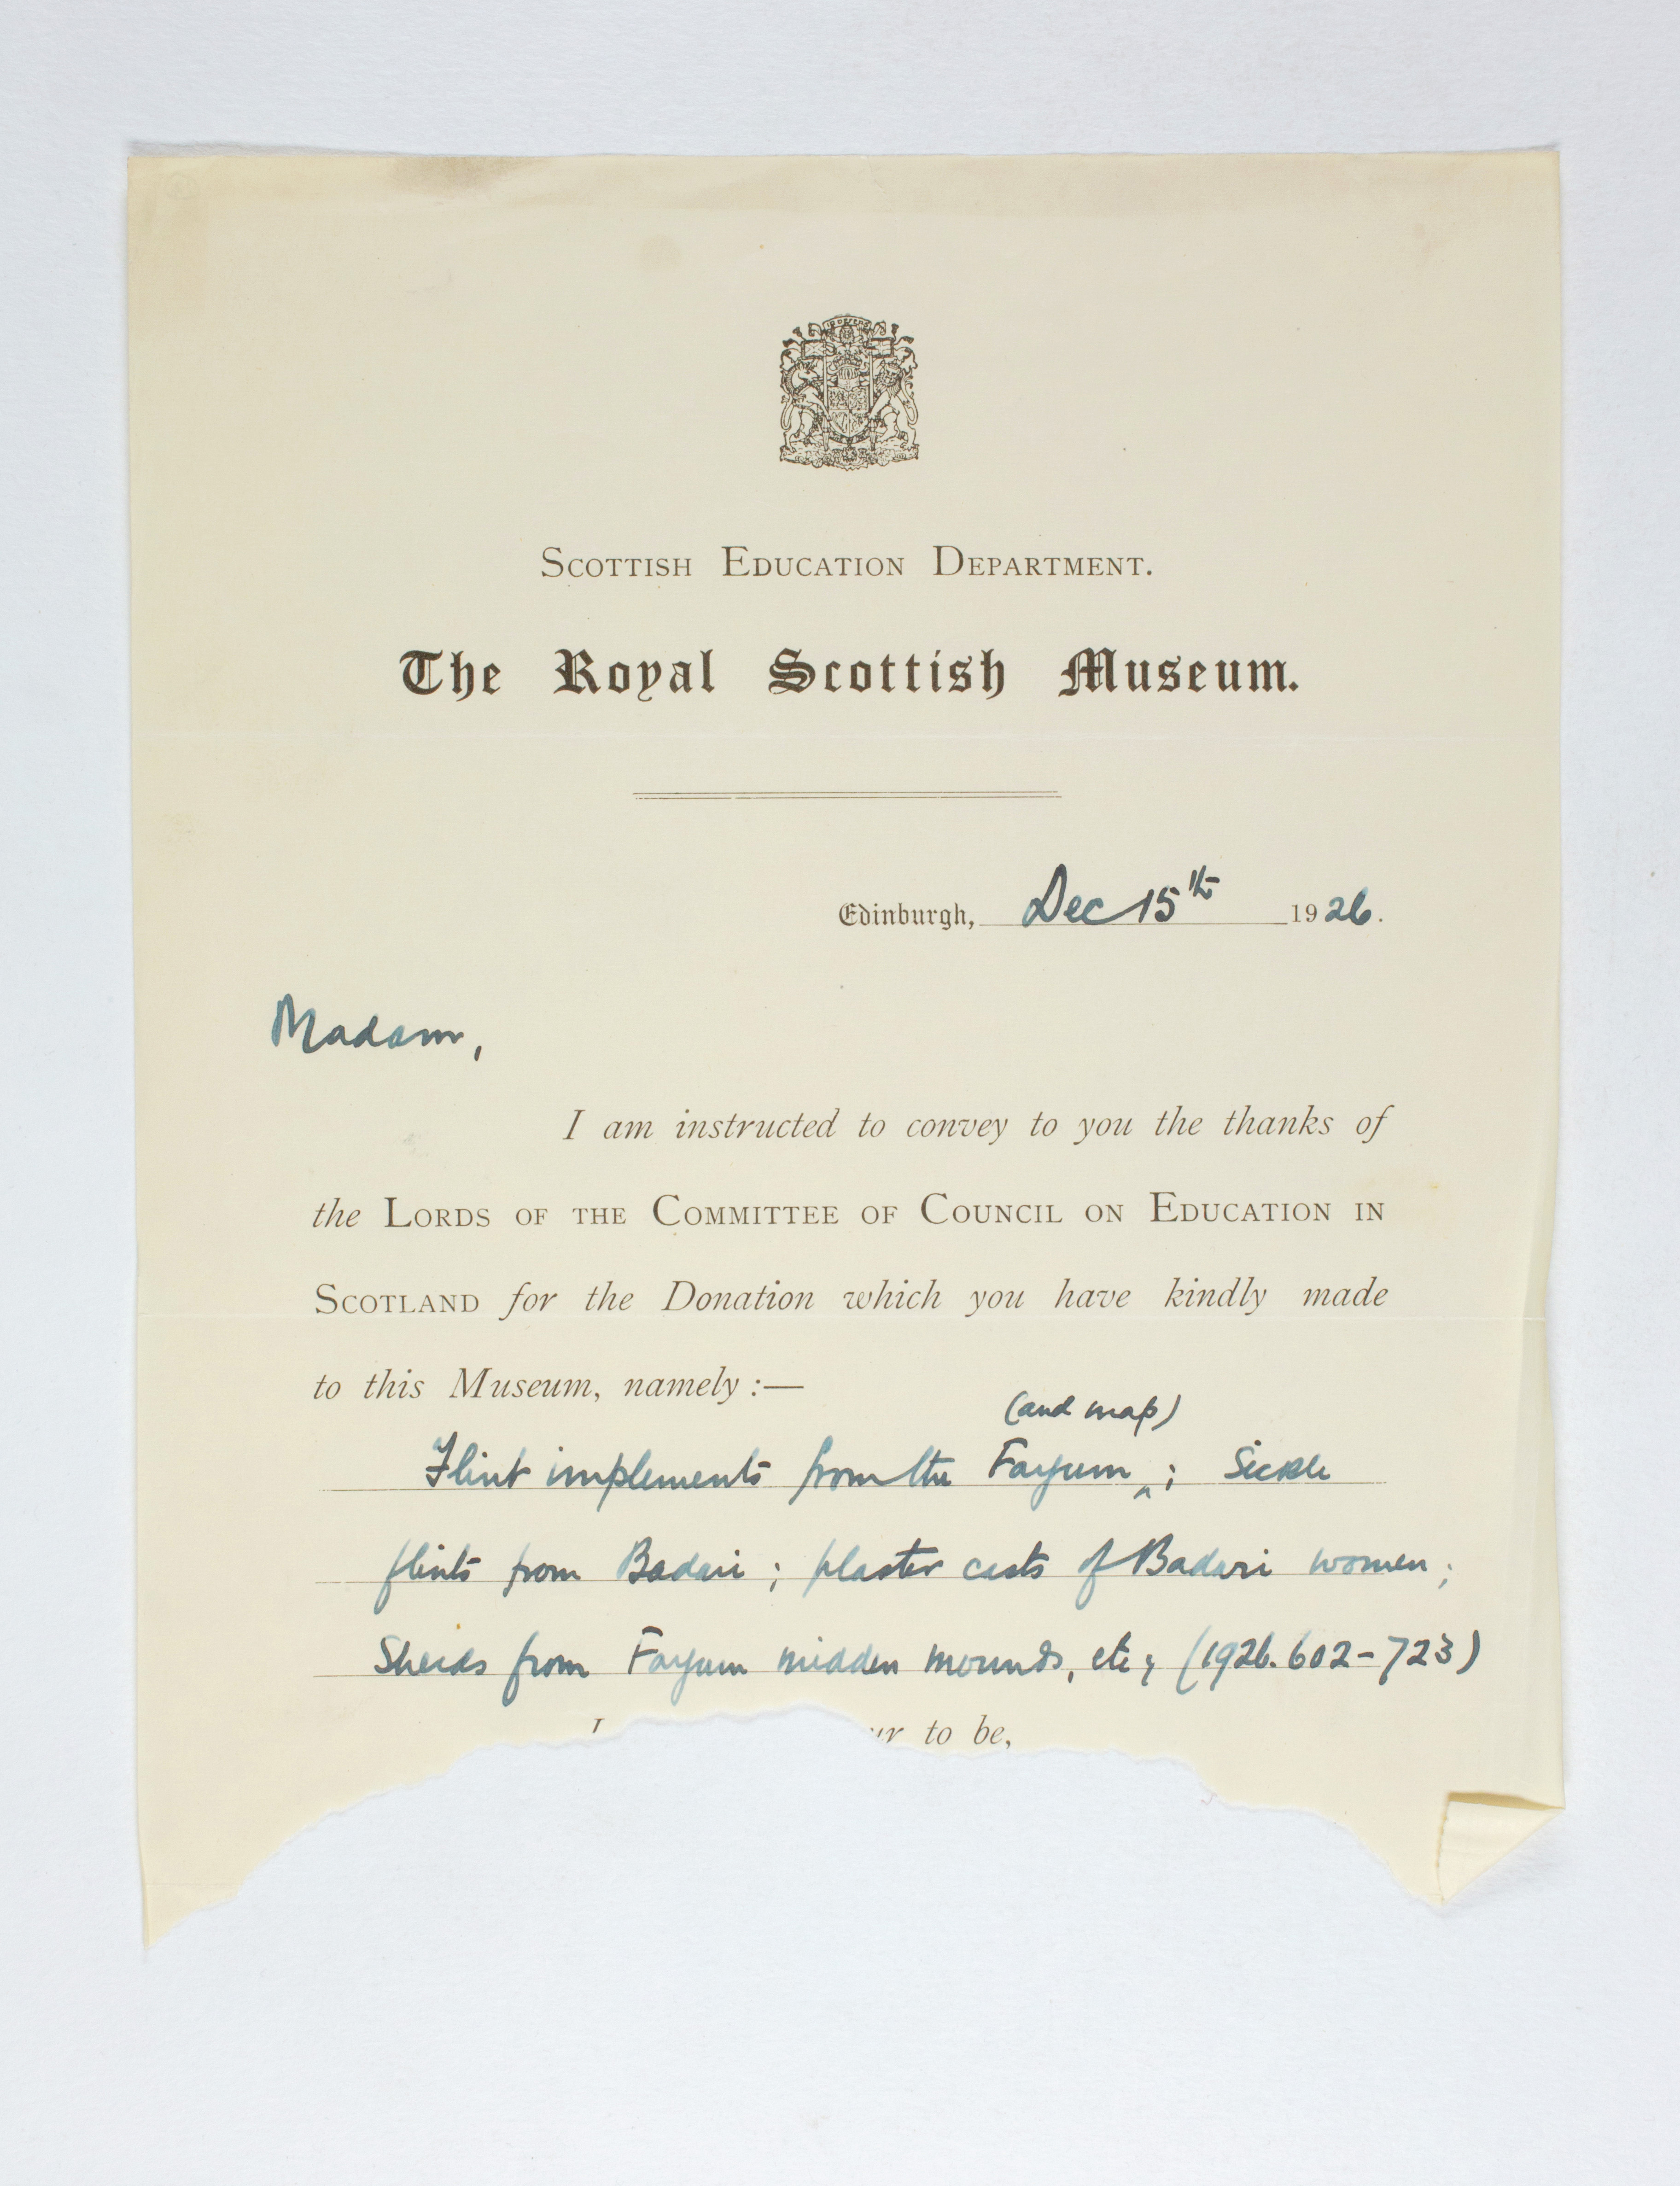 Scottish Education Department.
The Royal Scottish Museum.
Edinburgh, Dec 15th 1926.
Madam,
I am instructed to convey to you the thanks of
the Lords of the Committee of Council on Education in
Scotland for the Donation which you have kindly made
to this Museum, namely :—
(and map)
Flint implements from the Fayum ‸ ; Sickle
flints from Badari ; plaster casts of Badari women ;
Sherds from Fayum midden mounds, etc ; (1926. 602-723)
I to be,